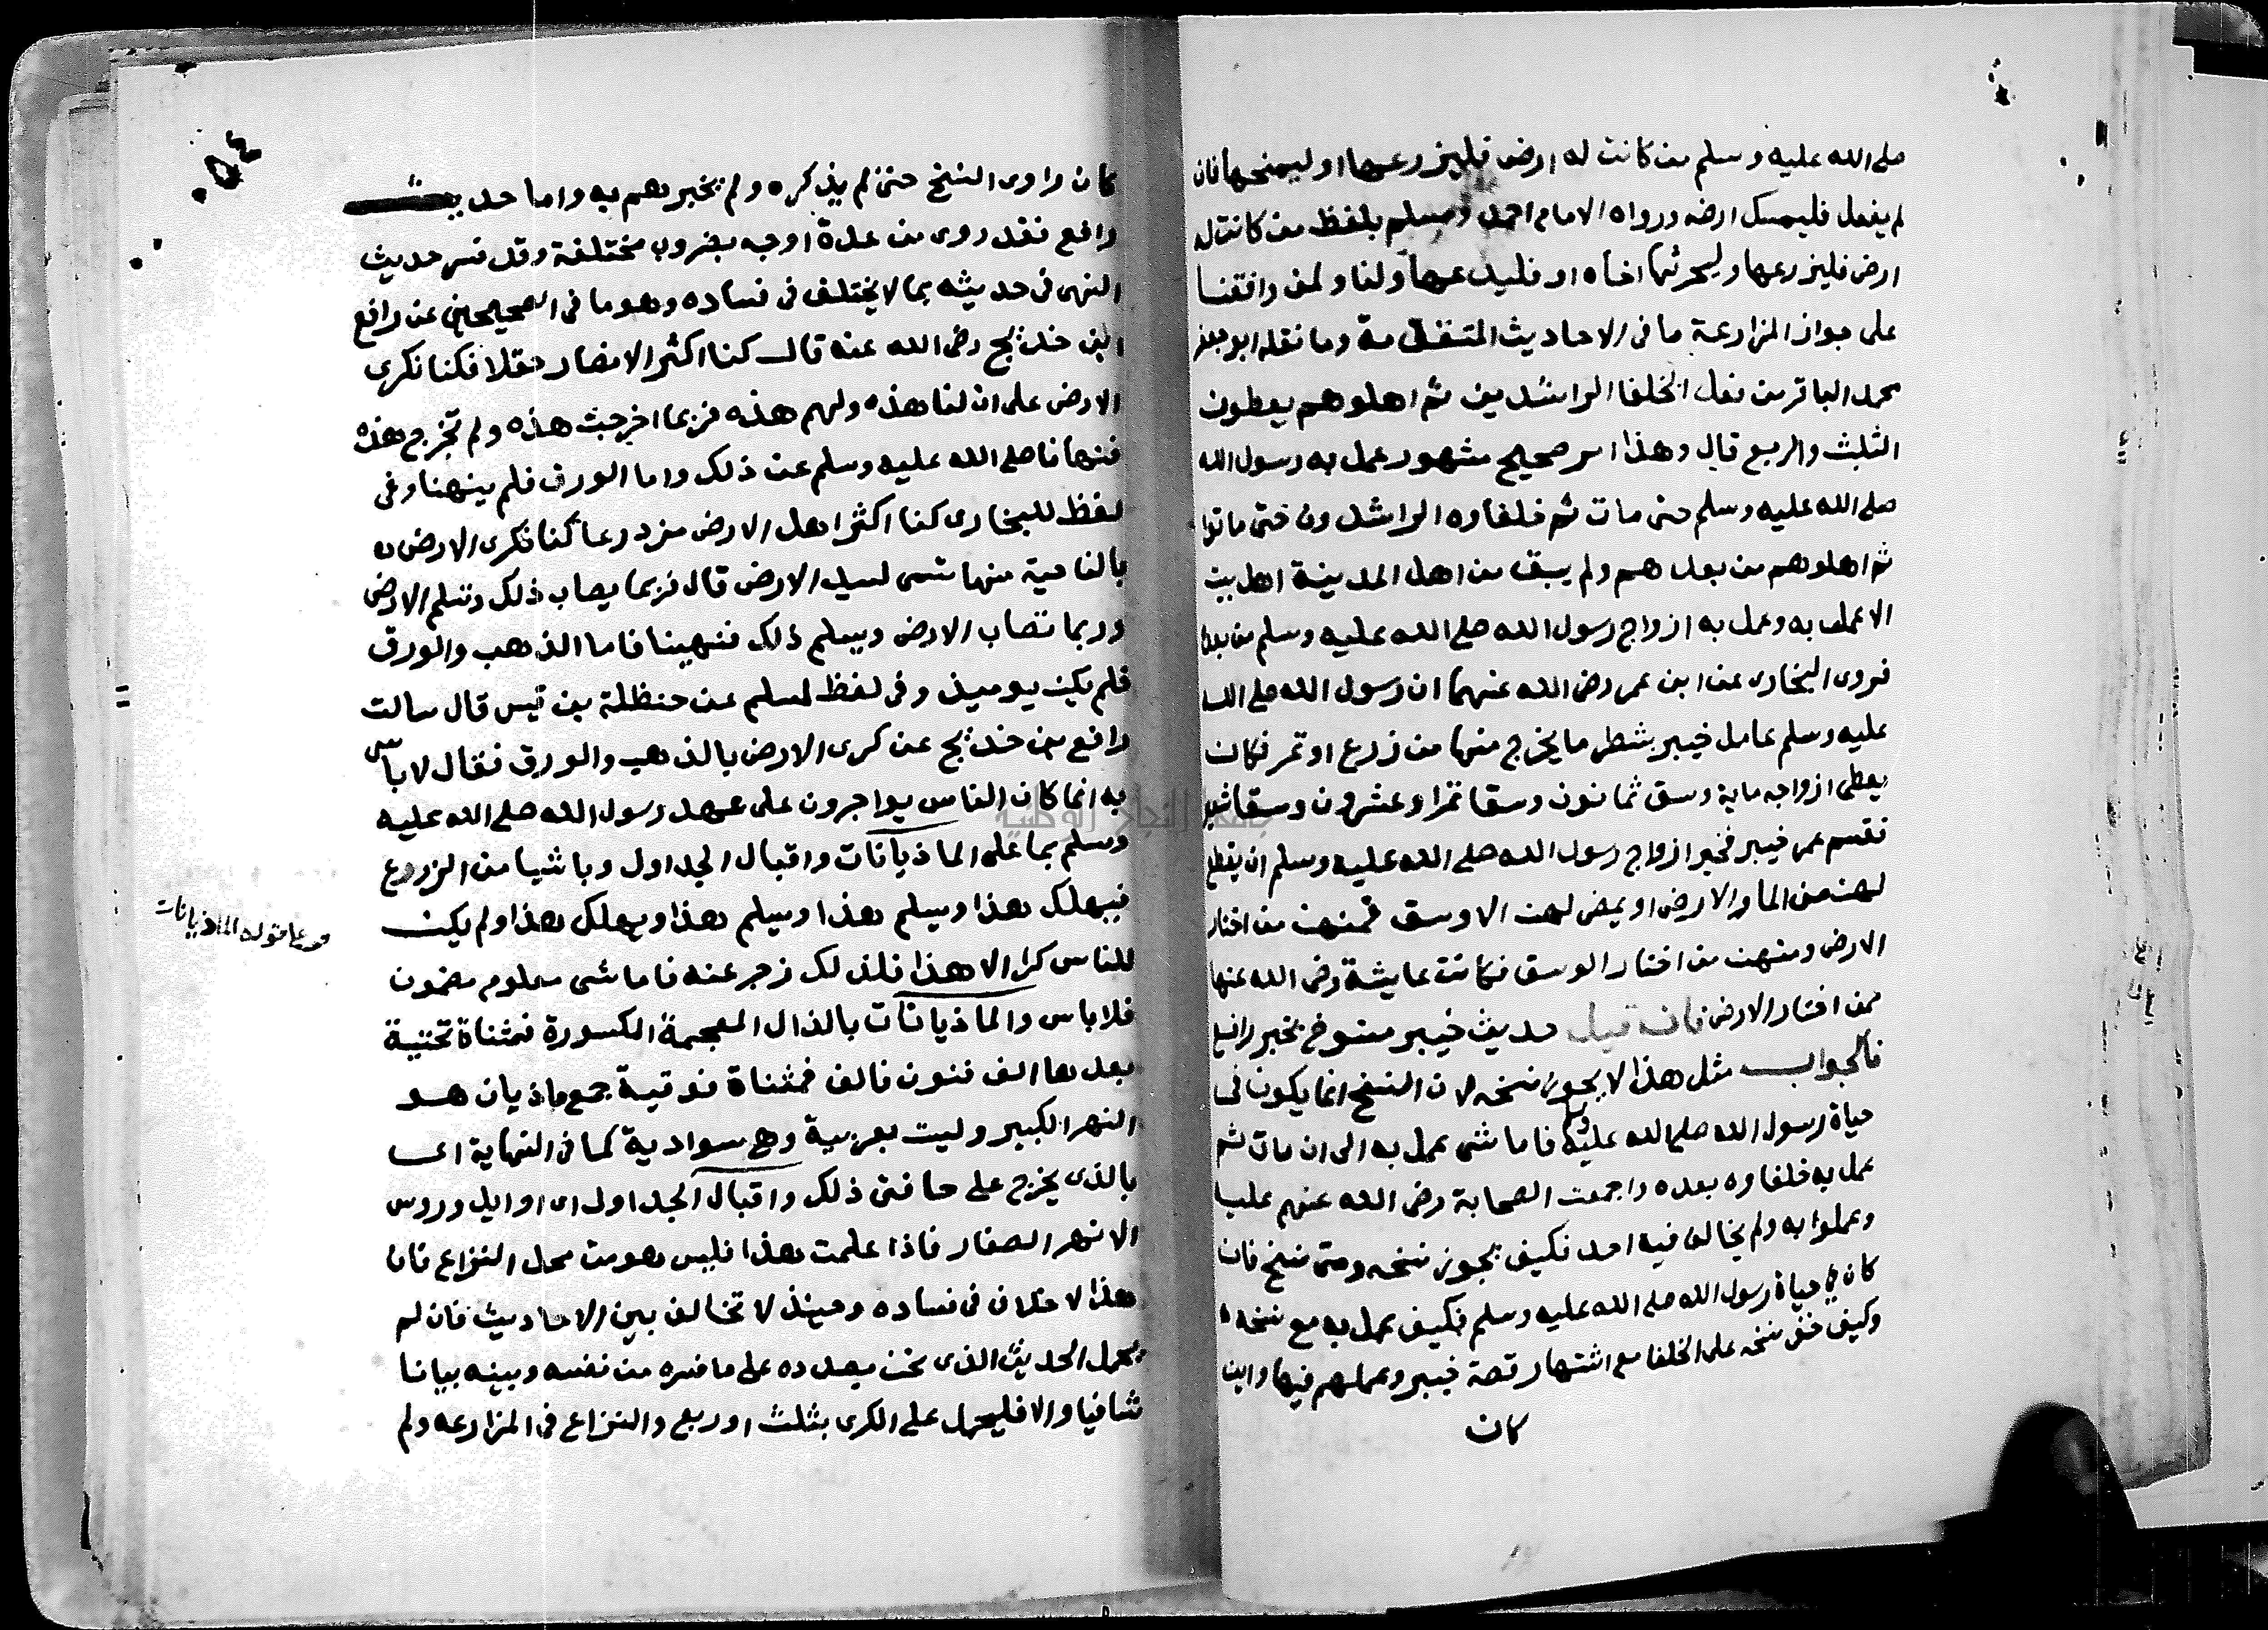 صلى الله عليه وسلم من كانت له ارض فليزرعها او ليمنحها فان
لم يفعل فليمسك ارضه ورواه الامام احمد ومسلم بلفظ من كانت له
ارض فليزرعها او ليحرثها اخاه او فليدعها ولنا ولمن وافقنا
على جواز المزارعة ما فى الاحاديث المتفق مة وما نقله ابو جعفر
محمد الباقر من فعل الخلفا الراشدين ثم اهلوهم يعطون
الثلث والربع قال وهذا امر صحيح مشهور عمل به رسول الله
صلى الله عليه وسلم حتى مات ثم خلفاوه الراشدون حتى ماتوا
ثم اهلوهم من بعدهم ولم يبق من اهل المدينة اهل بيت
الا عمل به وعمل به ازواج رسول الله صلى الله عليه وسلم من بعده
فروى البخارى عن ابن عمر رضى الله عنهما ان رسول الله صلى الله
عليه وسلم عامل خيبر بشطر ما يخرج منها من زرع او تمر فكان
يعطى ازواجه ماية وسق ثمانون وسقا تمرا وعشرون وسقا شعير
فقسم عمر خيبر فخير ازواج رسول الله صلى الله عليه وسلم ان يقطع
لهن من الما والارض او يمضى لهن الاوسق فمنهن من اختار
الارض ومنهن من اختار الوسق فكانت عايشة رضى الله عنها
ممن اختار الارض فان قيل حديث خيبر منسوخ بخبر رافع
فالجواب مثل هذا لا يجوز نسخه لان النسخ انما يكون فى
حياة رسول الله صلى الله عليه فاما شى عمل به الى ان مات ثم
عمل به خلفاوه بعده واجمعت الصحابة رضى الله عنهم عليه
وعملوا به ولم يخالف فيه احد فكيف يجوز نسخه ومتى نسخ فان
كان فى حياة رسول الله صلى الله عليه وسلم فكيف عمل به مع نسخه
وكيف خفى نسخه على الخلفا مع اشتهار قصة خيبر وعملهم فيها واين
كان
٥٤
كان راوى النسخ حتى لم يذكره ولم يخبرهم به واما حديث
رافع فقد روى من عدة اوجه بضروب مختلفة وقد فسر حديث
النهى فى حديثه بما لا يختلف فى فساده وهو ما فى الصحيحين عن رافع
ابن خديج رضى الله عنه قال كنا اكثر الانصار حقلا فكنا نكرى
الارض على ان لنا هذه ولهم هذه فربما اخرجت هذه ولم تخرج هذه
فنهانا صلى الله عليه وسلم عن ذلك واما الورق فلم ينهنا وفى
لفظ للبخارى كنا اكثر اهل الارض مزدرعا كنا نكرى الارض
بالناحية منها تسمى لسيد الارض قال فربما يصاب ذلك وتسلم الارض
وربما تصاب الارض ويسلم ذلك فنهينا فاما الذهب والورق
فلم يكن يوميذ وفى لفظ لمسلم عن حنظلة بن قيس قال سالت
رافع بن خديج عن كرى الارض بالذهب والورق فقال لا باس
به انما كان الناس يواجرون على عهد رسول الله صلى الله عليه
وسلم بما على الماذيانات واقبال الجداول وباشيا من الزروع
فيهلك هذا ويسلم هذا ويسلم هذا ويهلك هذا ولم يكن
للناس كرا الا هذا فلذلك زجر عنه فاما شى معلوم مضمون
فلا باس والماذيانات بالذال المعجمة المكسورة فمثناة تحتية
بعدها الف فنون فالف فمثناة فوقية جمع ماذيان هو
النهر الكبير وليست بعربية وهى سوادية كما فى النهاية اى
بالذى يخرج على حافتى ذلك واقبال الجداول اى اوايل وروس
الانهر الصغار فاذا علمت هذا فليس هو من محل النزاع فان
هذا لا خلاف فى فساده وحينئذ لا تخالف بين الاحاديث فان لم
يحمل الحديث الذى نحن بصدده على ما فسره من نفسه وبينه بيانا
شافيا والا فليحمل على الكرى بثلث او ربع والنزاع فى المزارعة ولم
قوله الماذيانات
جامعة النجاح الوطنية